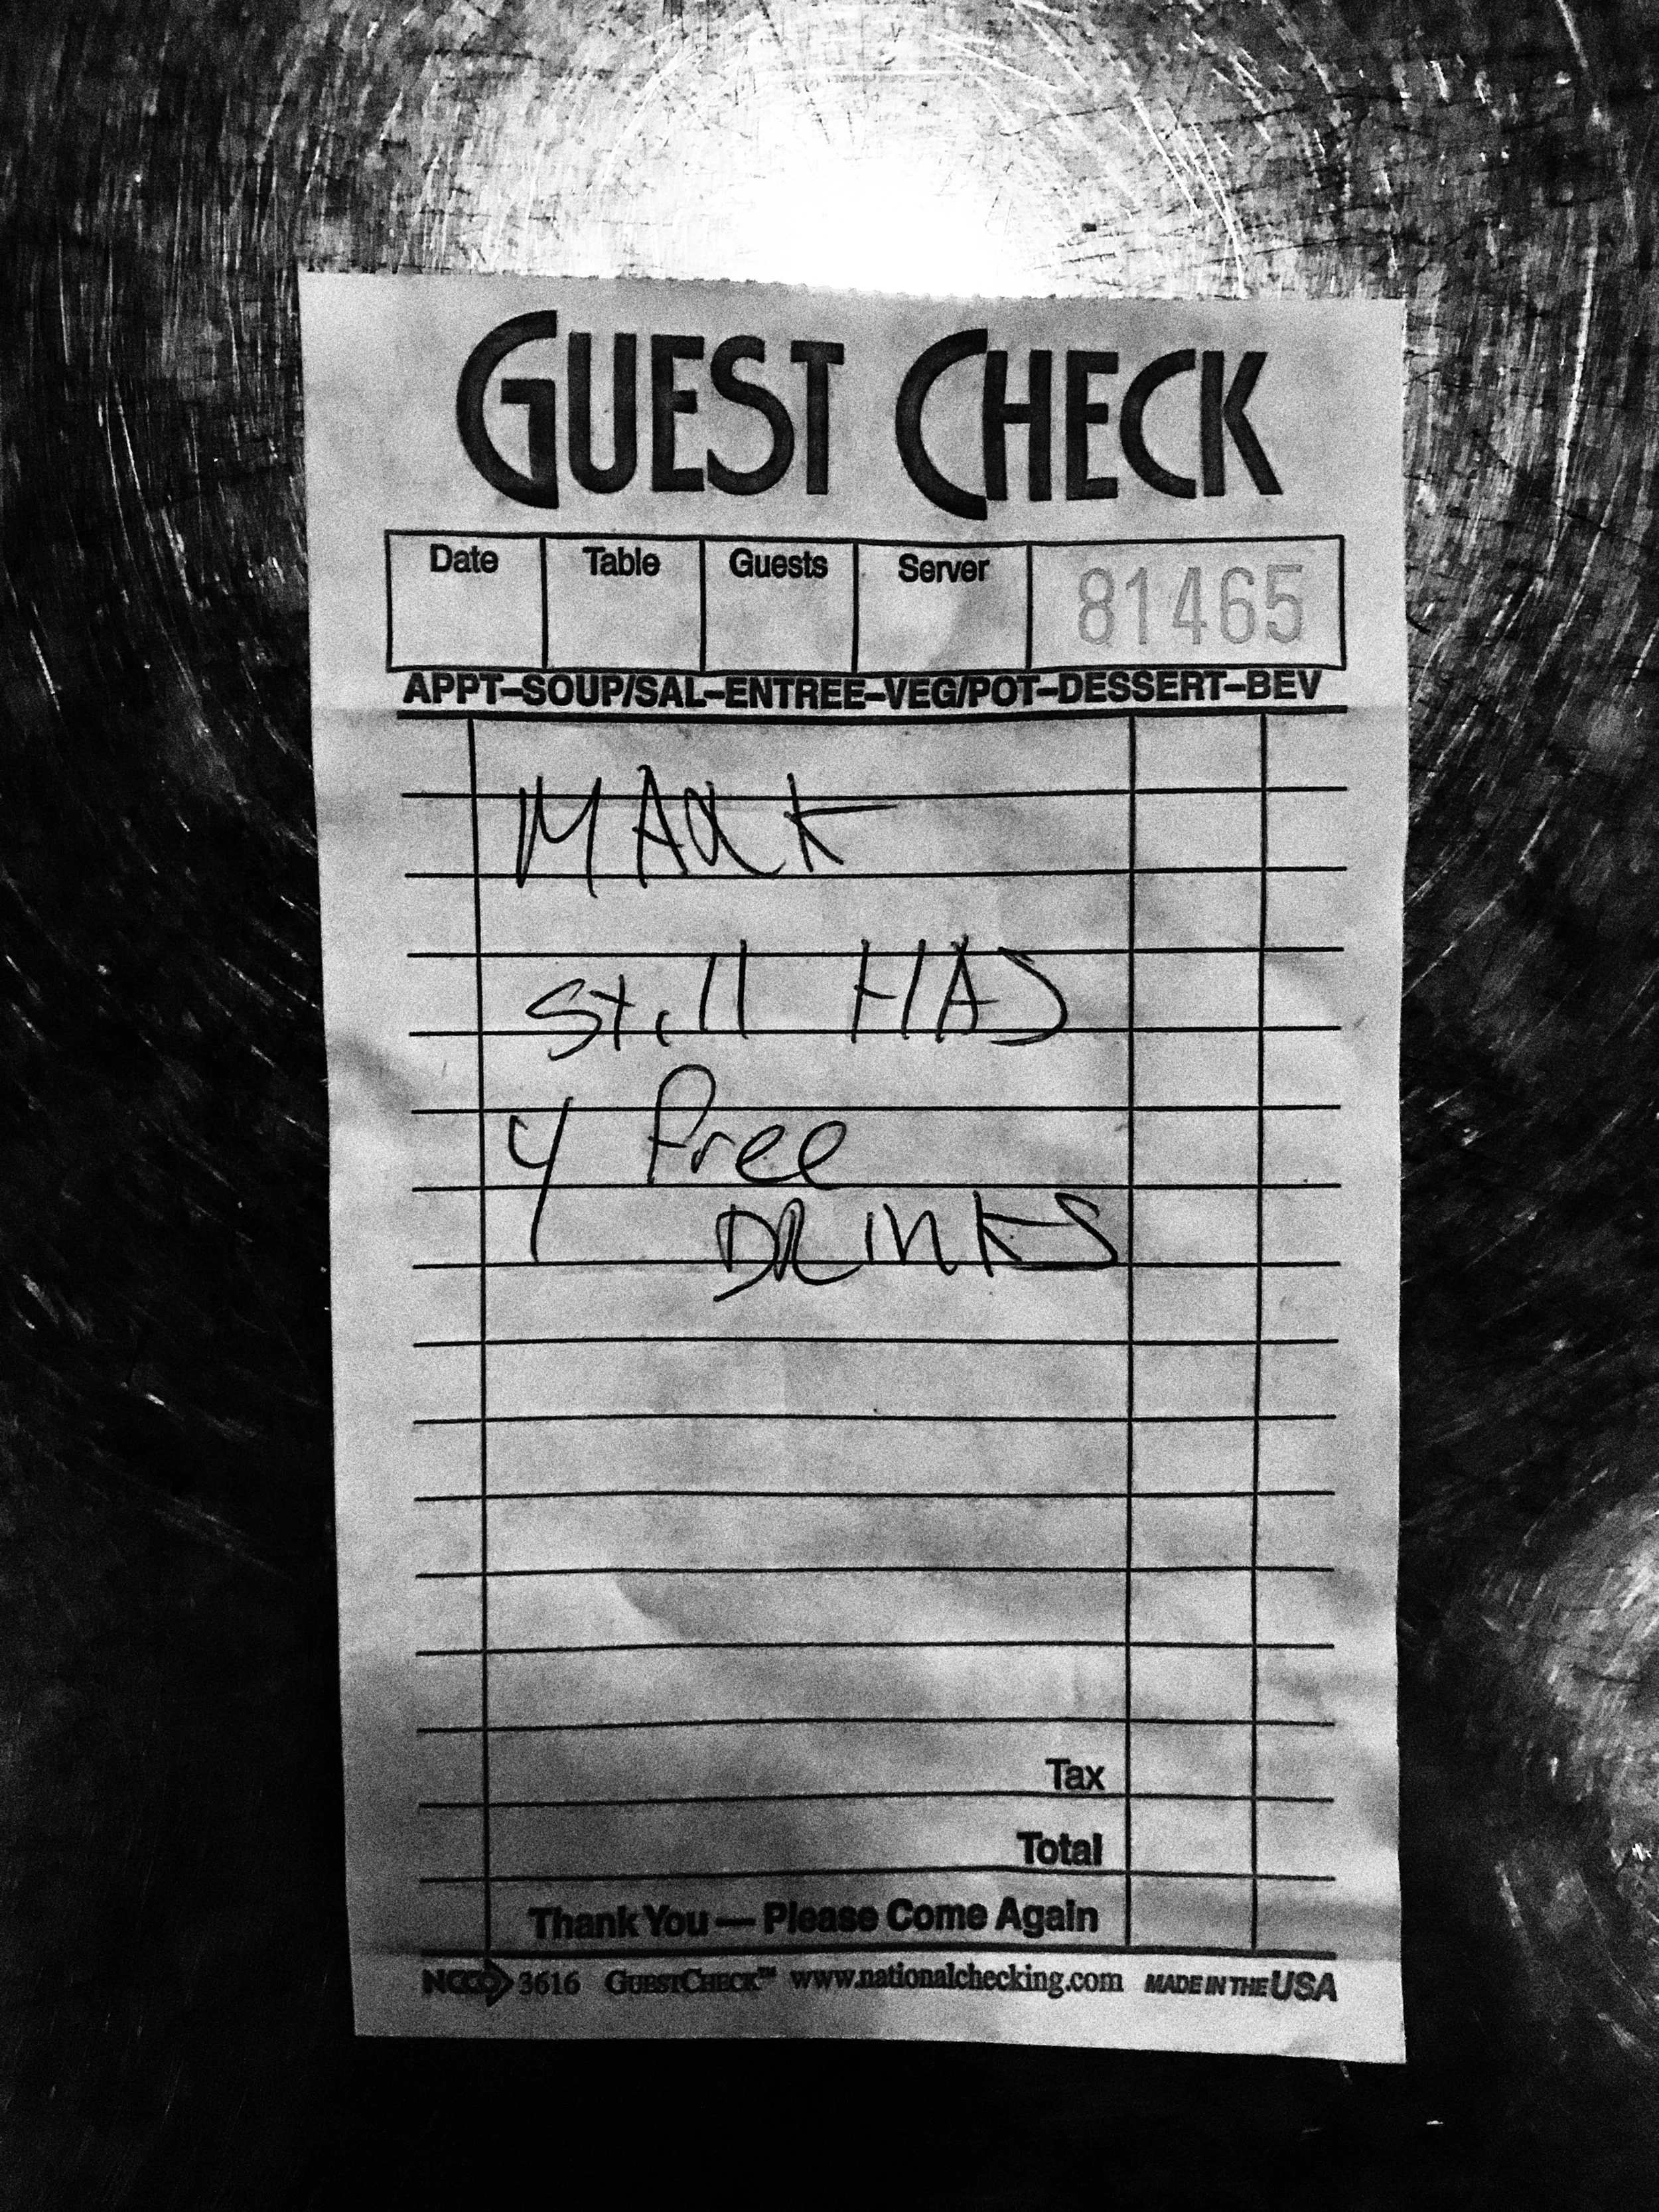 GUEST CHECK
Date Table Guests Server 81465
APPT–SOUP/SAL–ENTREE–VEG/POT–DESSERT–BEV
MARK
Still HAS
4 free
DRINKS
Tax
Total
Thank You — Please Come Again
NCCO 3616 GUESTCHECK™ www.nationalchecking.com MADE IN THE USA